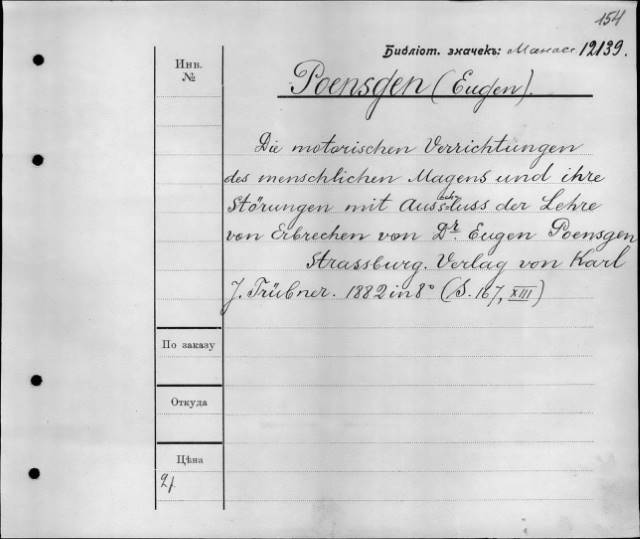 154
Библіот. значекъ: Манасс 12139.
Инв.
№
Poensgen (Eugen).
Die motorischen Verrichtungen
des menschlichen Magens und ihre
Störungen mit Ausschluss der Lehre
von Erbrechen von Dr. Eugen Poensgen
Strassburg. Verlag von Karl
J. Trübner. 1882 in 8° (S. 167, XIII)
По заказу
Откуда
Цѣна